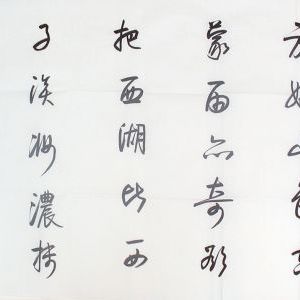 方好山色空
蒙雨亦奇欲
把西湖比西
子淡妝濃抹